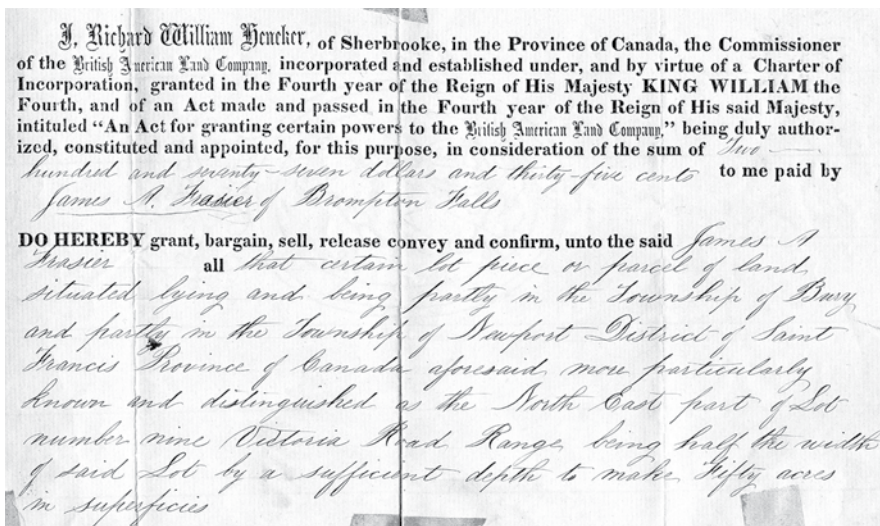 I, Richard William Heneker, of Sherbrooke, in the Province of Canada, the Commissioner
of the British American Land Company, incorporated and established under, and by virtue of a Charter of
Incorporation, granted in the Fourth year of the Reign of His Majesty KING WILLIAM the
Fourth, and of an Act made and passed in the Fourth year of the Reign of His said Majesty,
intituled "An Act for granting certain powers to the British American Land Company," being duly author-
ized, constituted and appointed, for this purpose, in consideration of the sum of Two
hundred and seventy-seven dollars and thirty-five cents to me paid by
James A. Frasier of Brompton Falls
DO HEREBY grant, bargain, sell, release convey and confirm, unto the said James A
Frasier all that certain lot piece or parcel of land
situated lying and being partly in the Township of Bury
and partly in the Township of Newport District of Saint
Francis Province of Canada aforesaid more particularly
known and distinguished as the North East part of Lot
number nine Victoria Road Range being half the width
of said Lot by a sufficient depth to make Fifty acres
in superficies